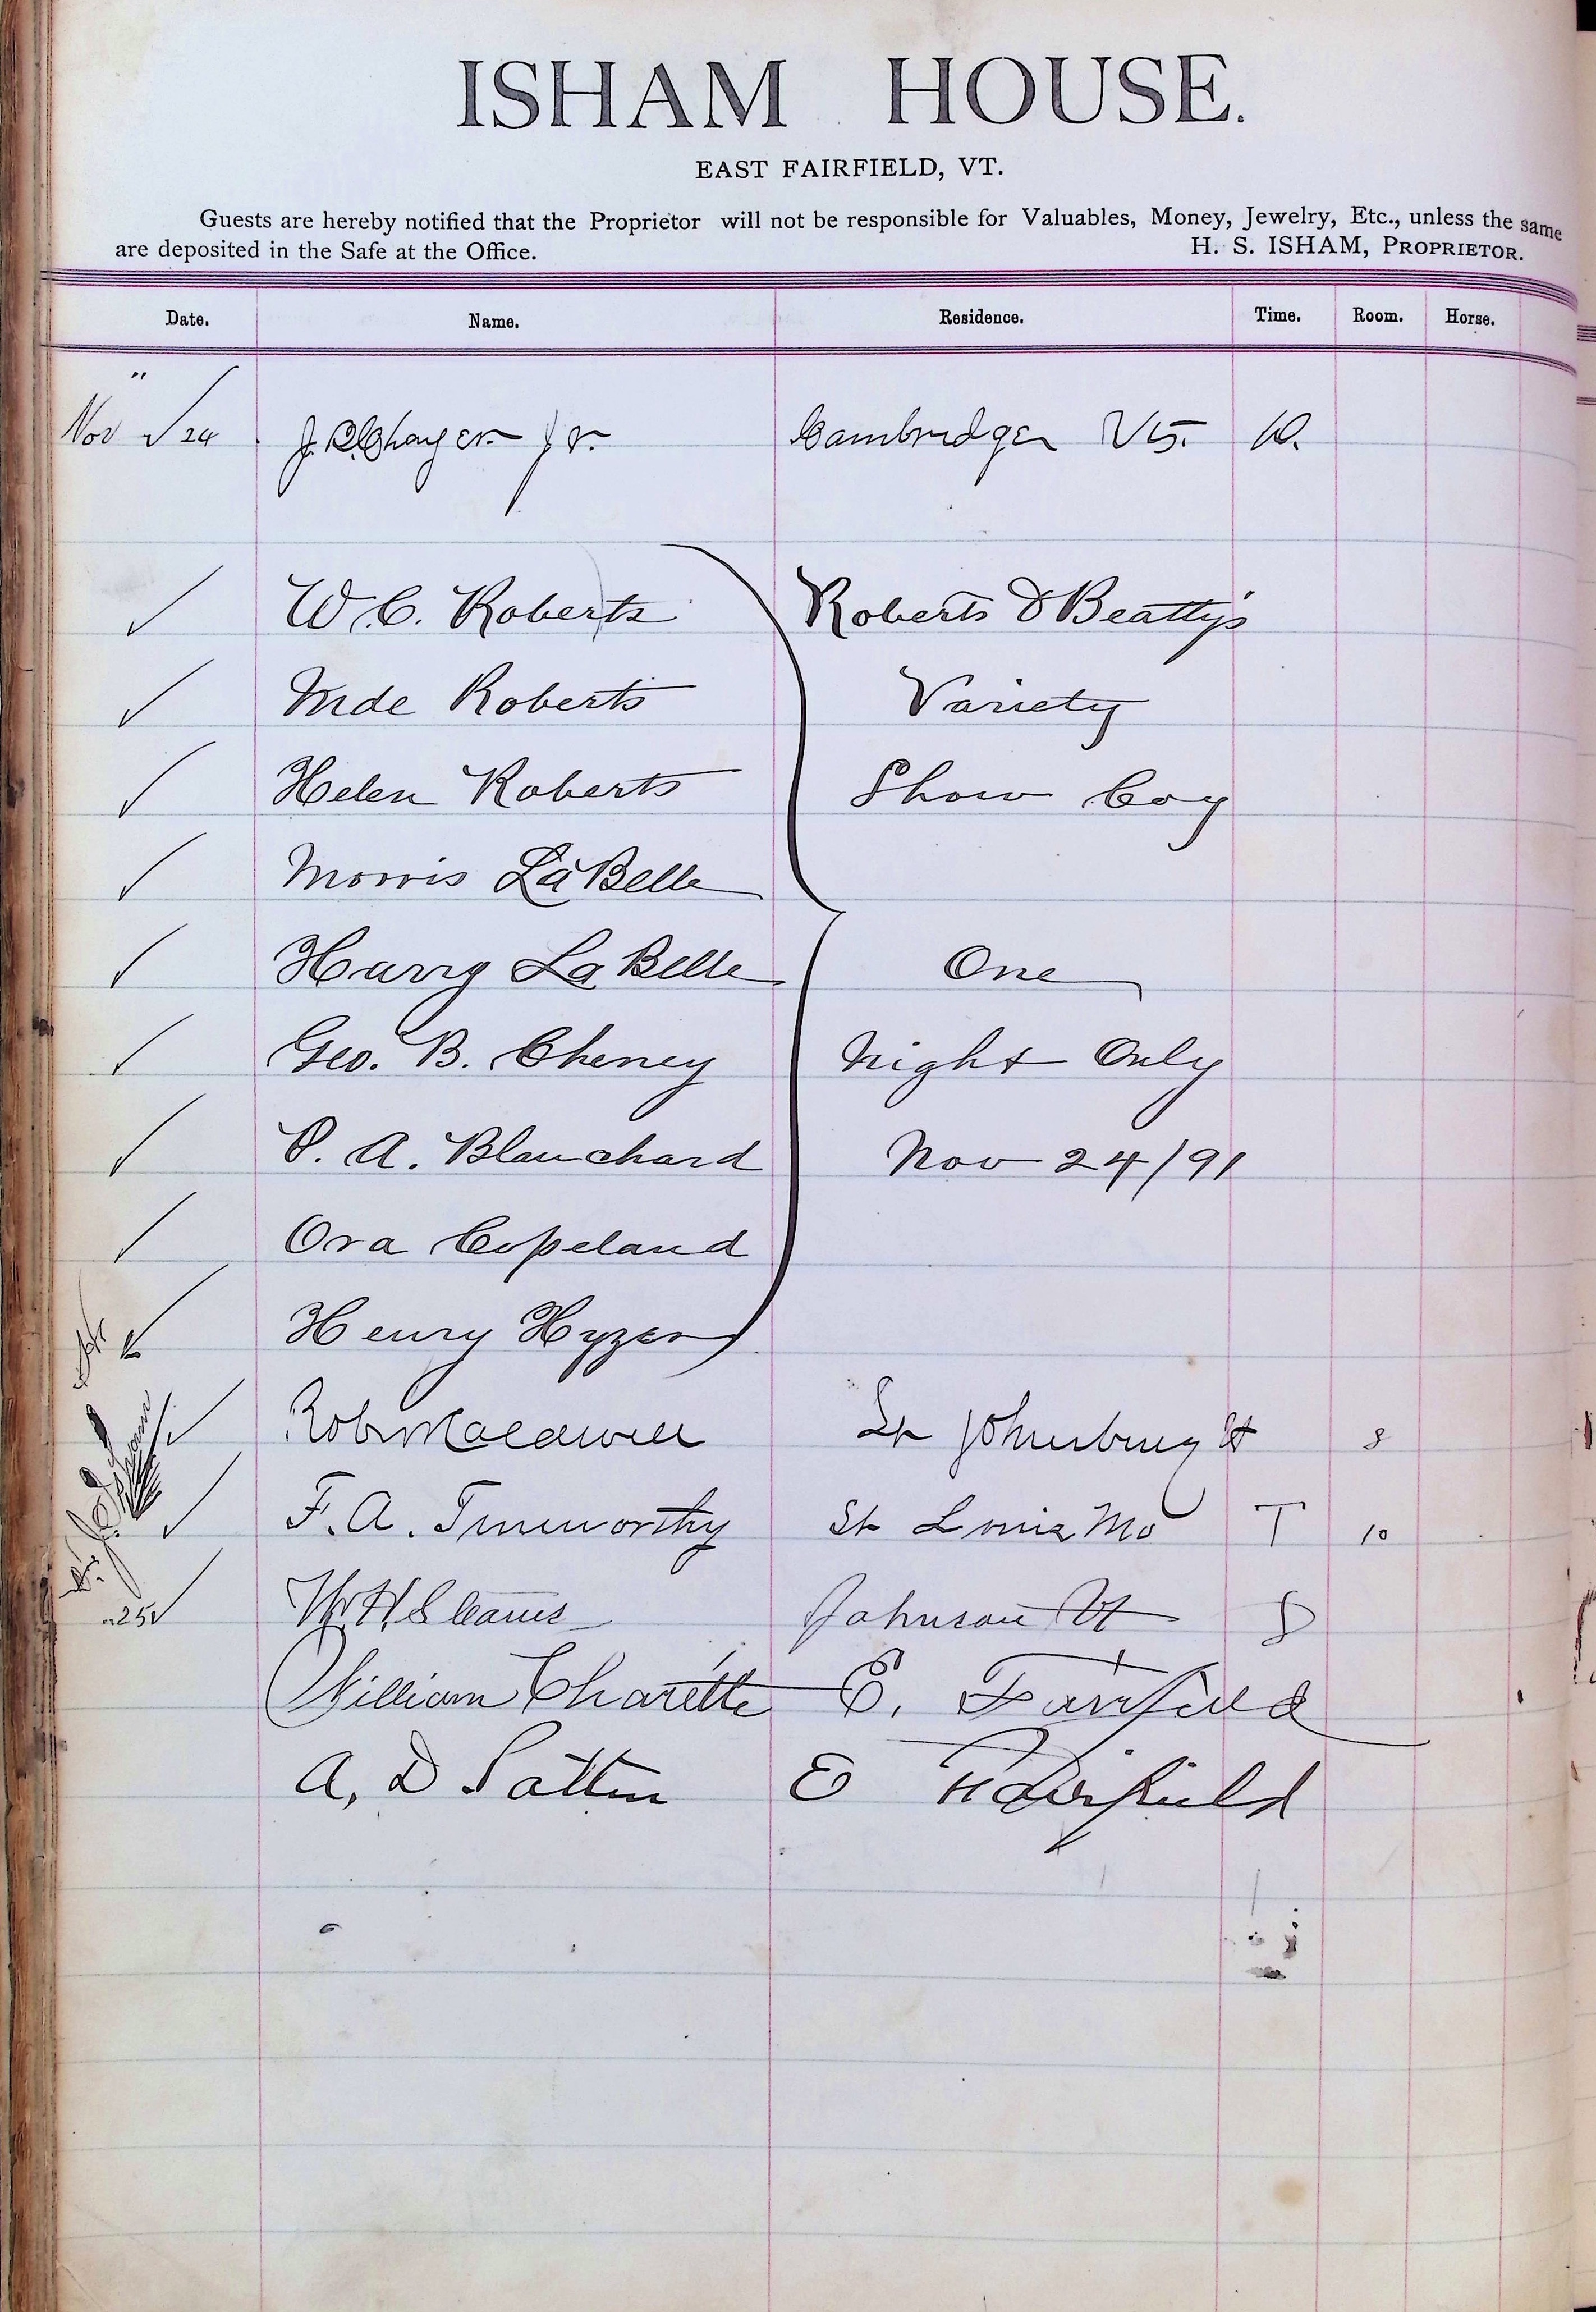 ISHAM HOUSE.
EAST FAIRFIELD, VT.
Guests are hereby notified that the Proprietor will not be responsible for Valuables, Money, Jewelry, Etc., unless the same
are deposited in the Safe at the Office. H. S. ISHAM, PROPRIETOR.
Date. Name. Residence. Time. Room. Horse.
"
Nov ✓ 24 Jr. Cambridge Vt. 10.
✓ W. C. Roberts Roberts & Beatty's
✓ Mde Roberts Variety
✓ Helen Roberts Show Coy
✓ Morris LaBelle
✓ Harry LaBelle One
✓ Geo. B. Cheney Night Only
✓ P. A. Blanchard Nov 24/91
✓ Ora Copeland
✓ Henry Hyzer
✓ Robt Caldwell St Johnsbury Vt 8
✓ F. A. Trueworthy St Louis Mo T 10
"25 ✓ W. H. Stearns Johnson Vt S
William Charette E. Fairfield
A. D. Patten E Fairfield